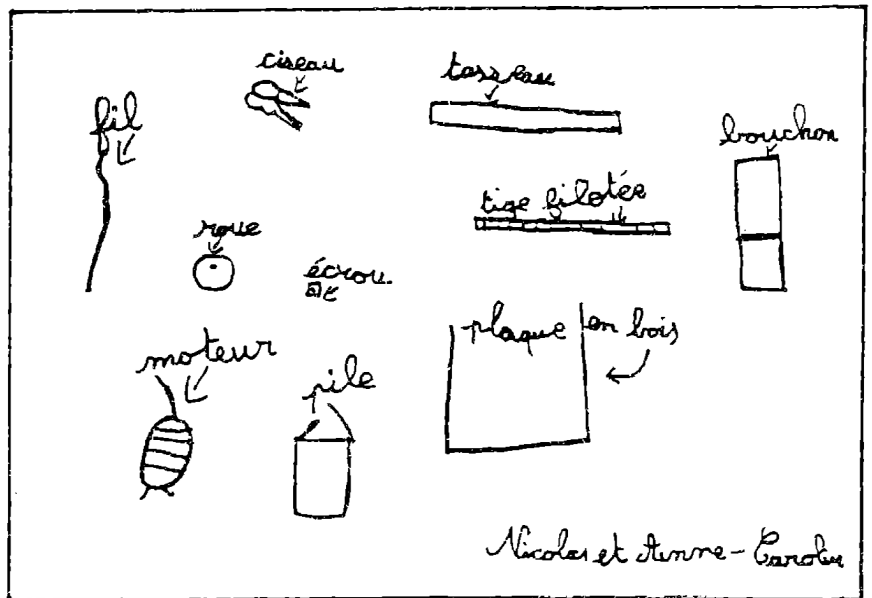 ciseau
tasseau
fil
bouchon
tige filotée
roue
écrou.
plaque en bois
moteur
pile
Nicolas et Anne-Carolu